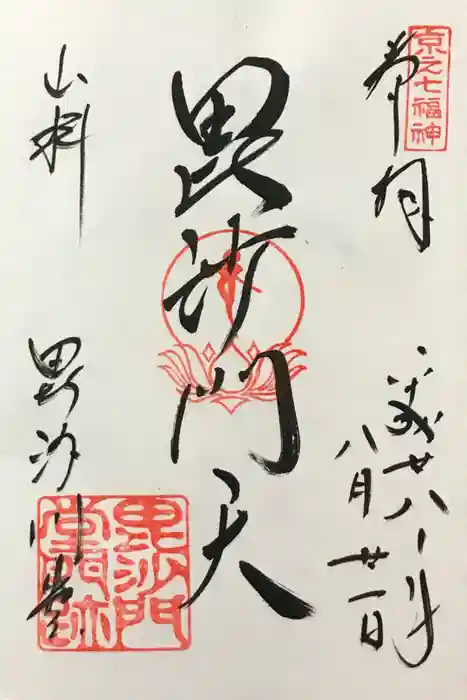 京之七福神
奉拝
平成廿八年
八月廿一日
毘沙門天
山科
毘沙門堂
毘沙門
堂門跡